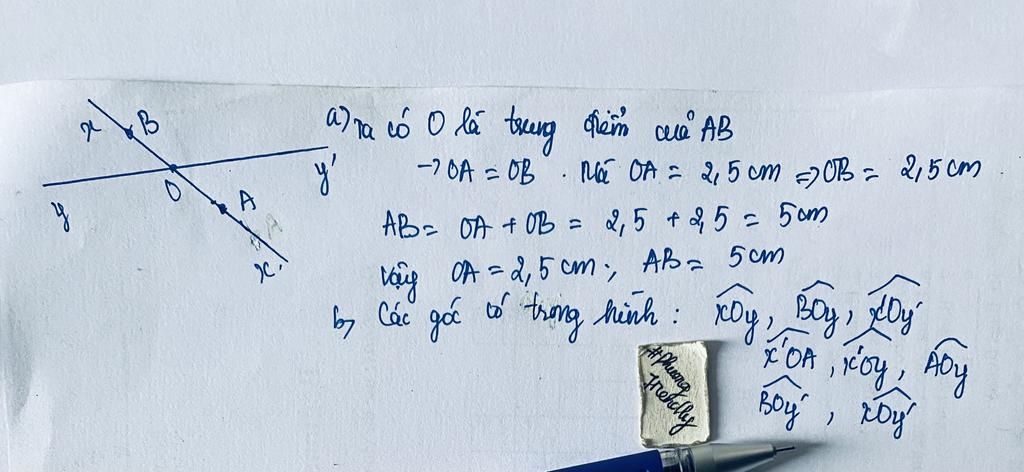 x
B
y'
O
A
y
x'
a) Ta có O là trung điểm của AB
→ OA = OB . Mà OA = 2,5 cm ⇒ OB = 2,5 cm
AB = OA + OB = 2,5 + 2,5 = 5cm
Vậy OA = 2,5 cm ; AB = 5cm
b, Các góc có trong hình : xOy, BOy, xOy'
x'OA , x'Oy , AOy
BOy' , xOy'
#Phuong